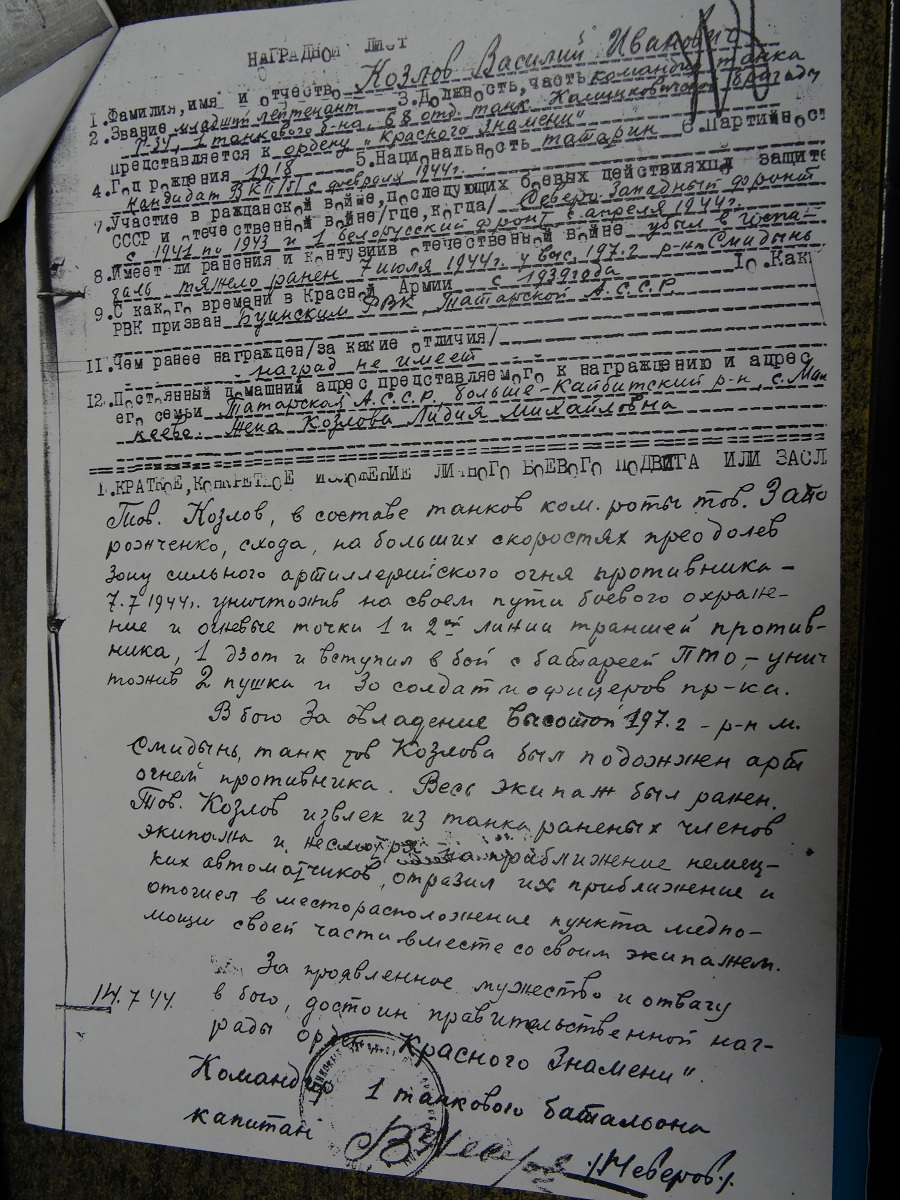 НАГРАДНОЙ ЛИСТ
1.Фамилия,имя и отчество Козлов Василий Иванович
2.Звание младший лейтенант 3.Должность,часть командир танка
Т-34, 1 танкового б-на, 68 отд. танк. бригады
Представляется к ордену „Красного Знамени"
4.Год рождения 1918 5.Национальность татарин 6.Партийност
кандидат ВКП/б/ с февраля 1944г.
7.Участие в гражданской войне,последующих боевых действиях по защите
СССР и отечественной войне/где,когда/ Северо-Западный фронт
с 1941 по 1943 и 1 белорусский фронт с апреля 1944г.
8.Имеет ли ранения и контузии в отечественной войне убыл в госпи-
таль тяжело ранен 7 июля 1944г. у выс. 197.2 р-н Смидынь
9.С какого времени в Красной Армии с 1939 года 10.Каки
РВК призван Буинским РВК Татарской А.С.С.Р.
11.Чем ранее награжден/за какие отличия/
наград не имеет
12.Постоянный домашний адрес представляемого к награждению и адрес
его семьи Татарской А.С.С.Р., больше-Кайбитский р-н, с.Мал
кеево. Жена Козлова Лидия Михайловна
1.КРАТКОЕ,КОНКРЕТНОЕ ИЗЛОЖЕНИЕ ЛИЧНОГО БОЕВОГО ПОДВИГА ИЛИ ЗАСЛ
Тов. Козлов, в составе танков ком. роты тов. Запо
рожченко, схода, на больших скоростях преодолев
зону сильного артиллерийского огня противника –
7.7 1944г. уничтожив на своем пути боевого охране-
ние и огневые точки 1 и 2ой линии траншей против-
ника, 1 дзот и вступил в бой с батареей ПТО, – унич
тожив 2 пушки и 30 солдат и офицеров пр-ка.
В бою за овладение высотой 197.2 – р-н м.
Смидынь, танк тов Козлова был подожжен арт
огнем противника. Весь экипаж был ранен.
Тов. Козлов извлек из танка раненых членов
экипажа и несмотря на приближение немец-
ких автоматчиков, отразил их приближение и
отошел в месторасположение пункта медпо-
мощи своей части вместе со своим экипажем.
За проявленное мужество и отвагу
14.7 44. в бою, достоин правительственной наг-
рады орден „Красного Знамени".
Командир 1 танкового батальона
капитан /Чеверов./